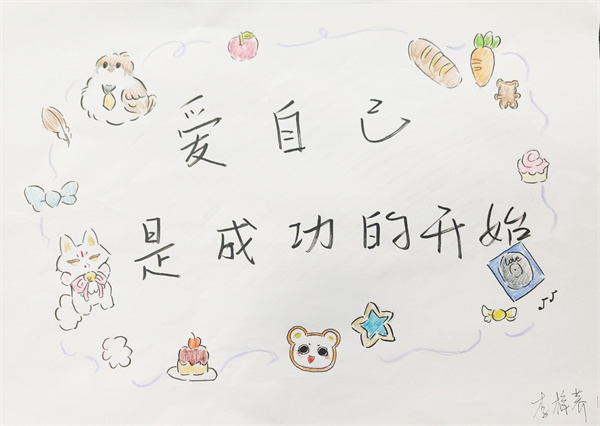 爱自己
是成功的开始
love